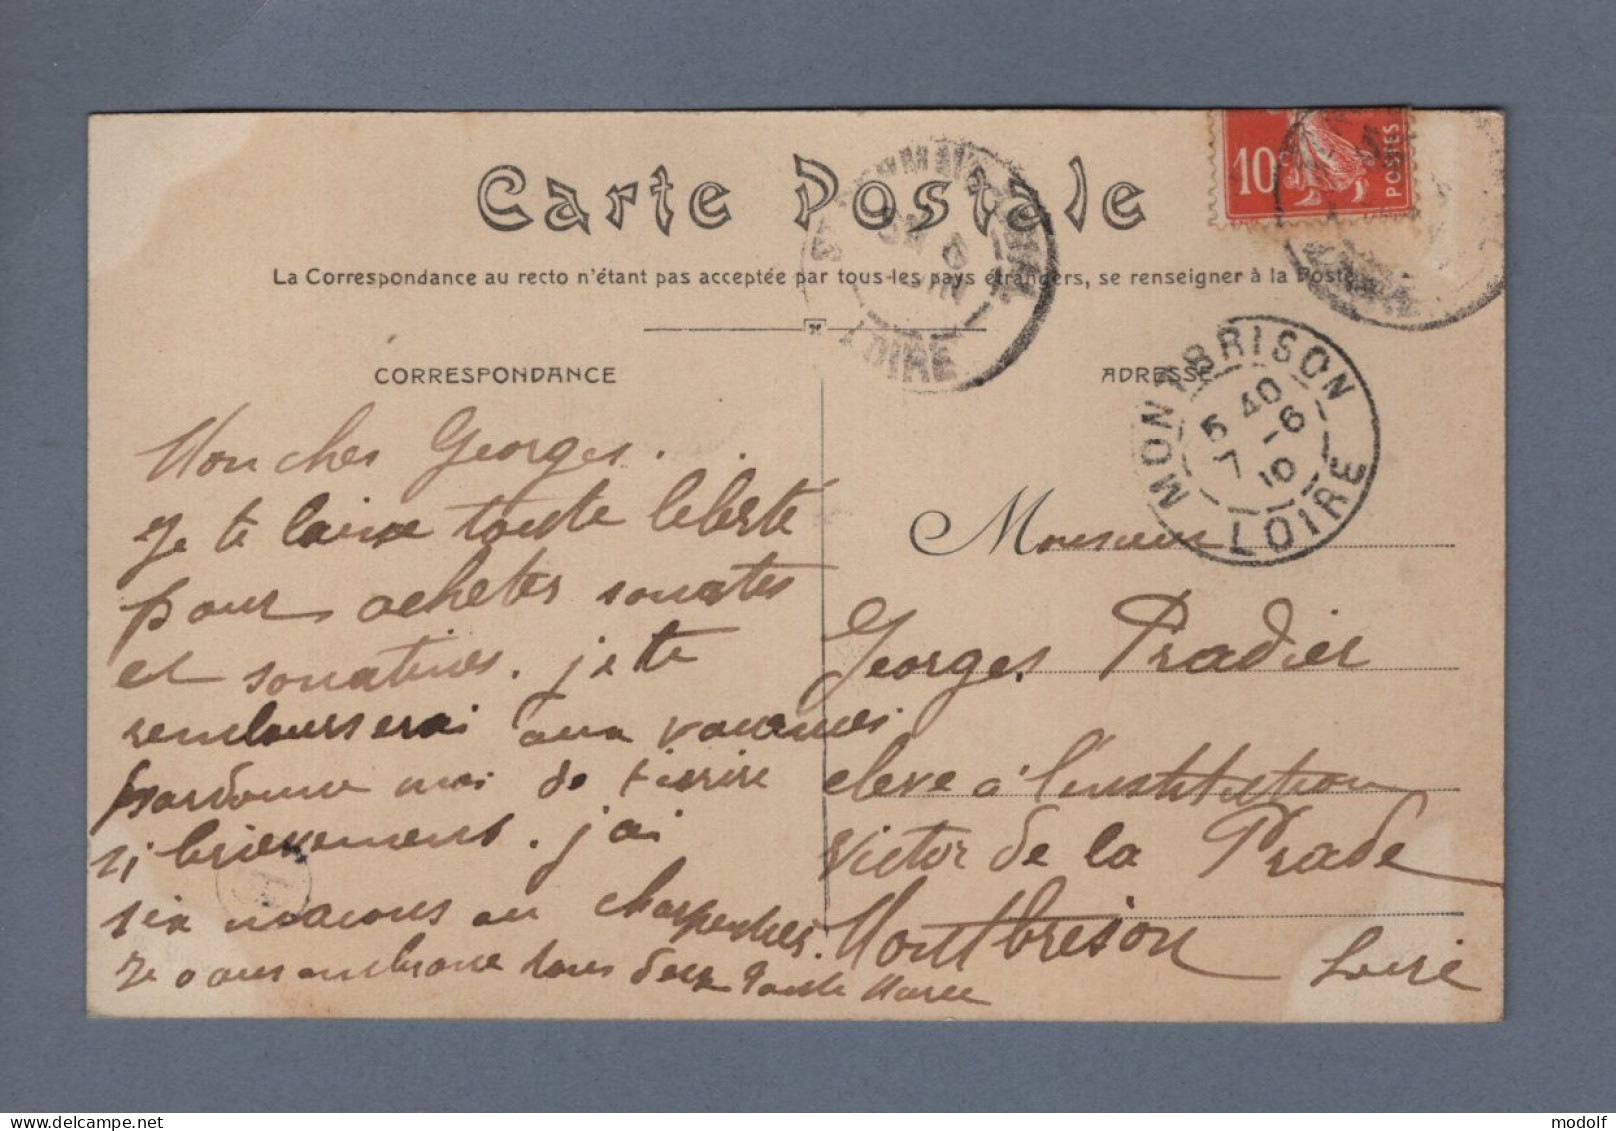 Carte Postale
La Correspondance au recto n'étant pas acceptée par tous les pays étrangers, se renseigner à la Poste
CORRESPONDANCE
Mon cher Georges.
Je te laisse toute leberté
pour acheter sonates
et sonatines. je te
rembourserai aux vacances
pardonne moi de t'ecrire
si brievement. j'ai
six macons ou charpentiers.
Je vous embrasse tous deux Tante Marie
ADRESSE
Monsieur
Georges Pradier
eleve à l'institution
Victor de la Prade
Montbrison
Loire
10c
POSTES
LOIRE
MONTBRISON
5 40
7 - 6
10
LOIRE
www.delcampe.net
modolf